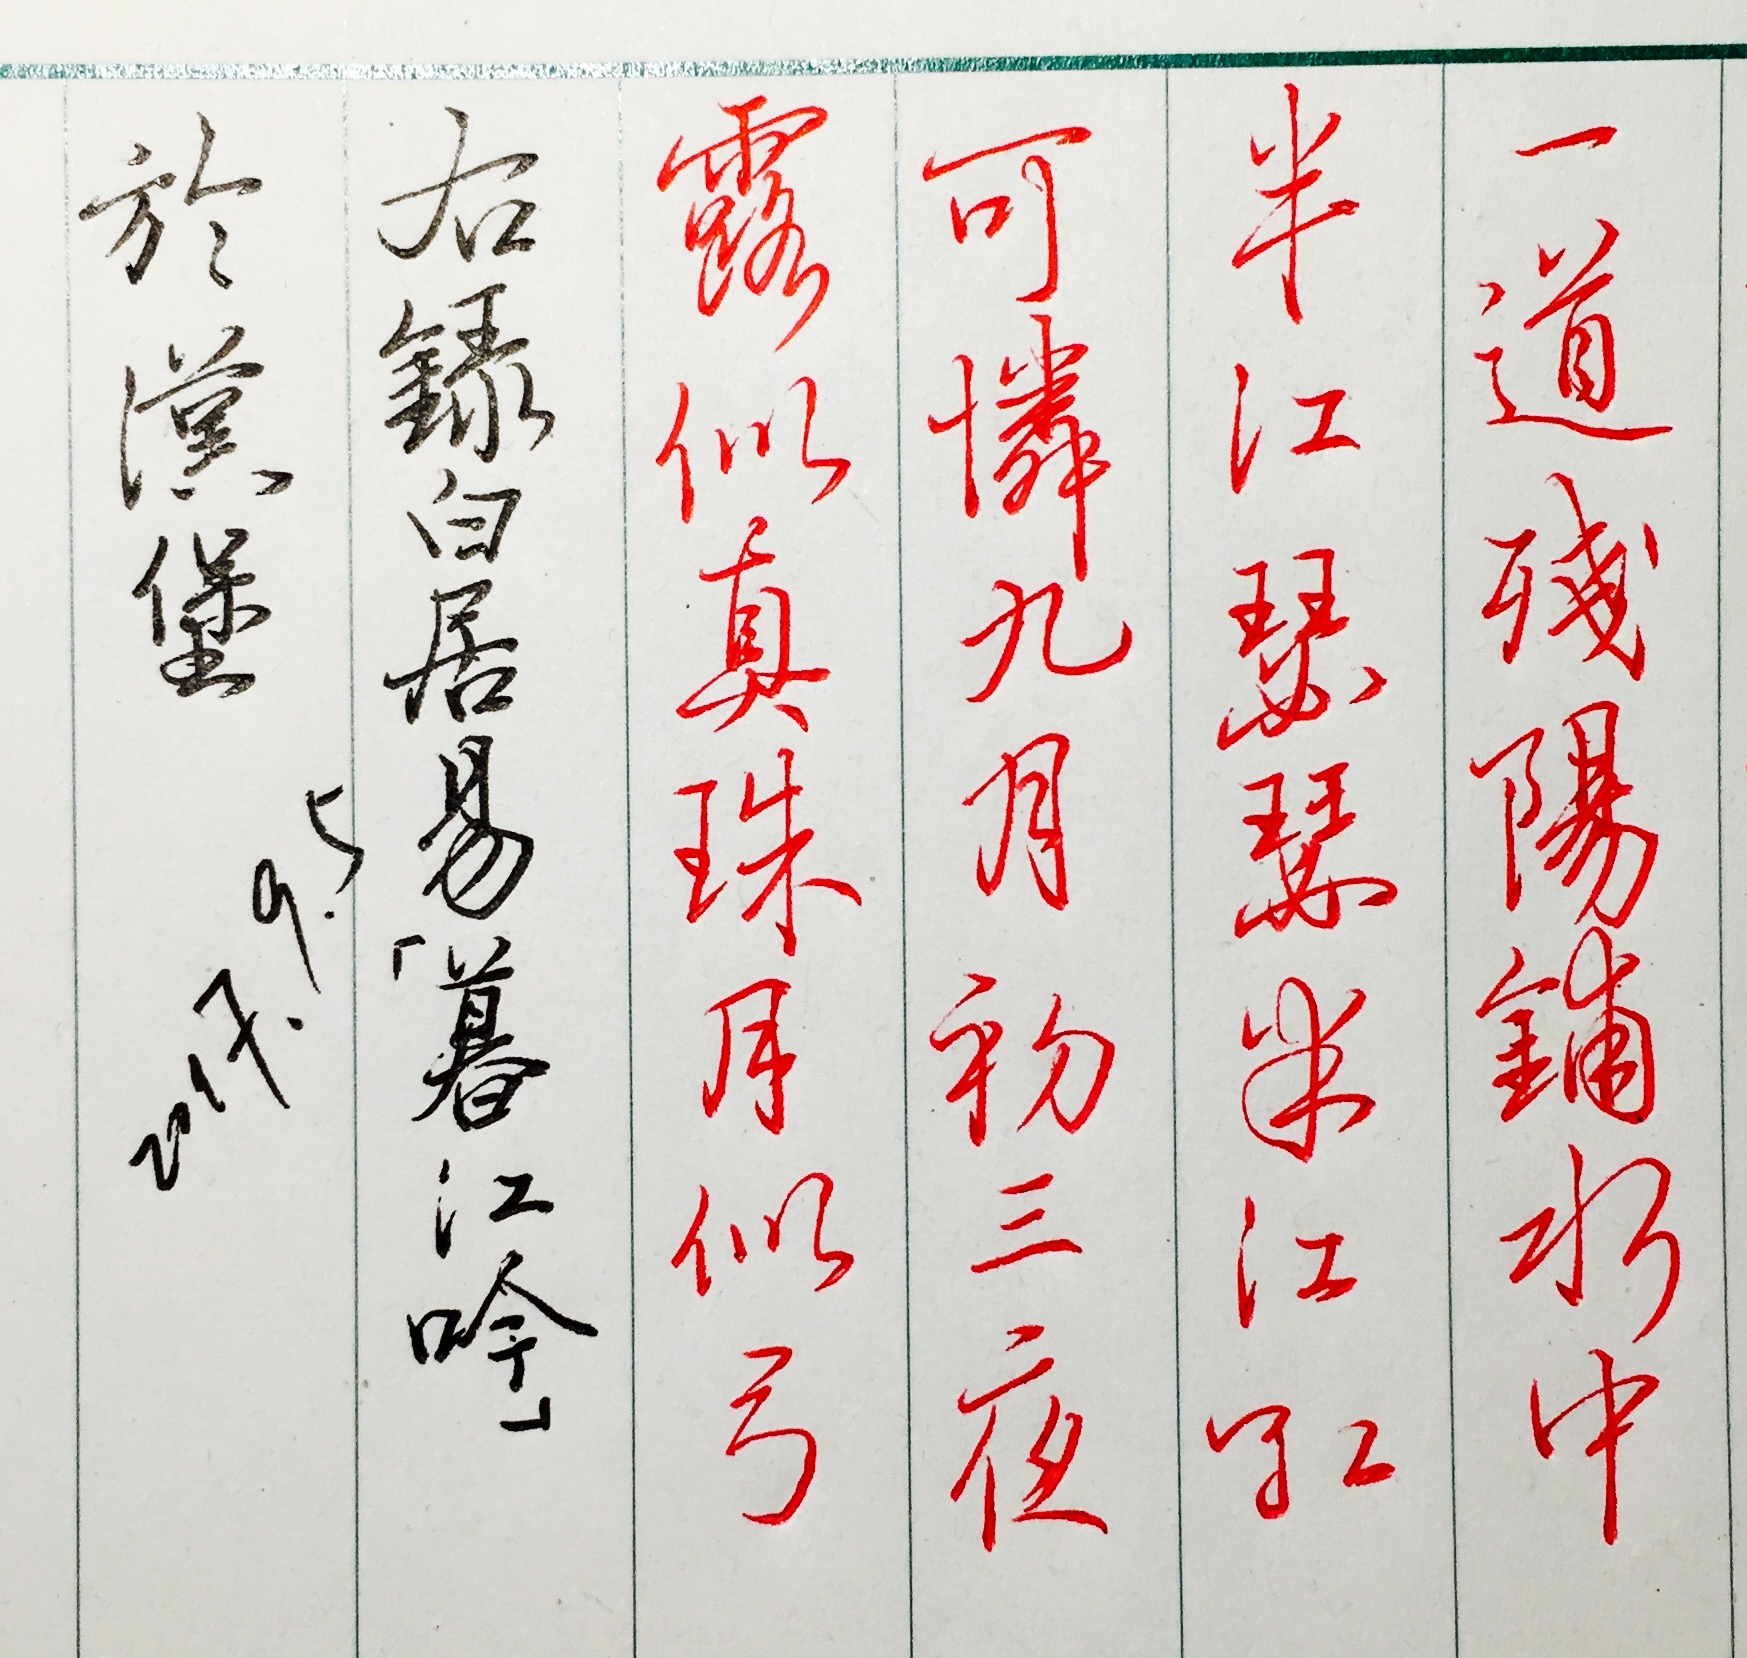 一道殘陽鋪水中
半江瑟瑟半江紅
可憐九月初三夜
露似真珠月似弓
右録白居易「暮江吟」
於漢堡
2017.9.5